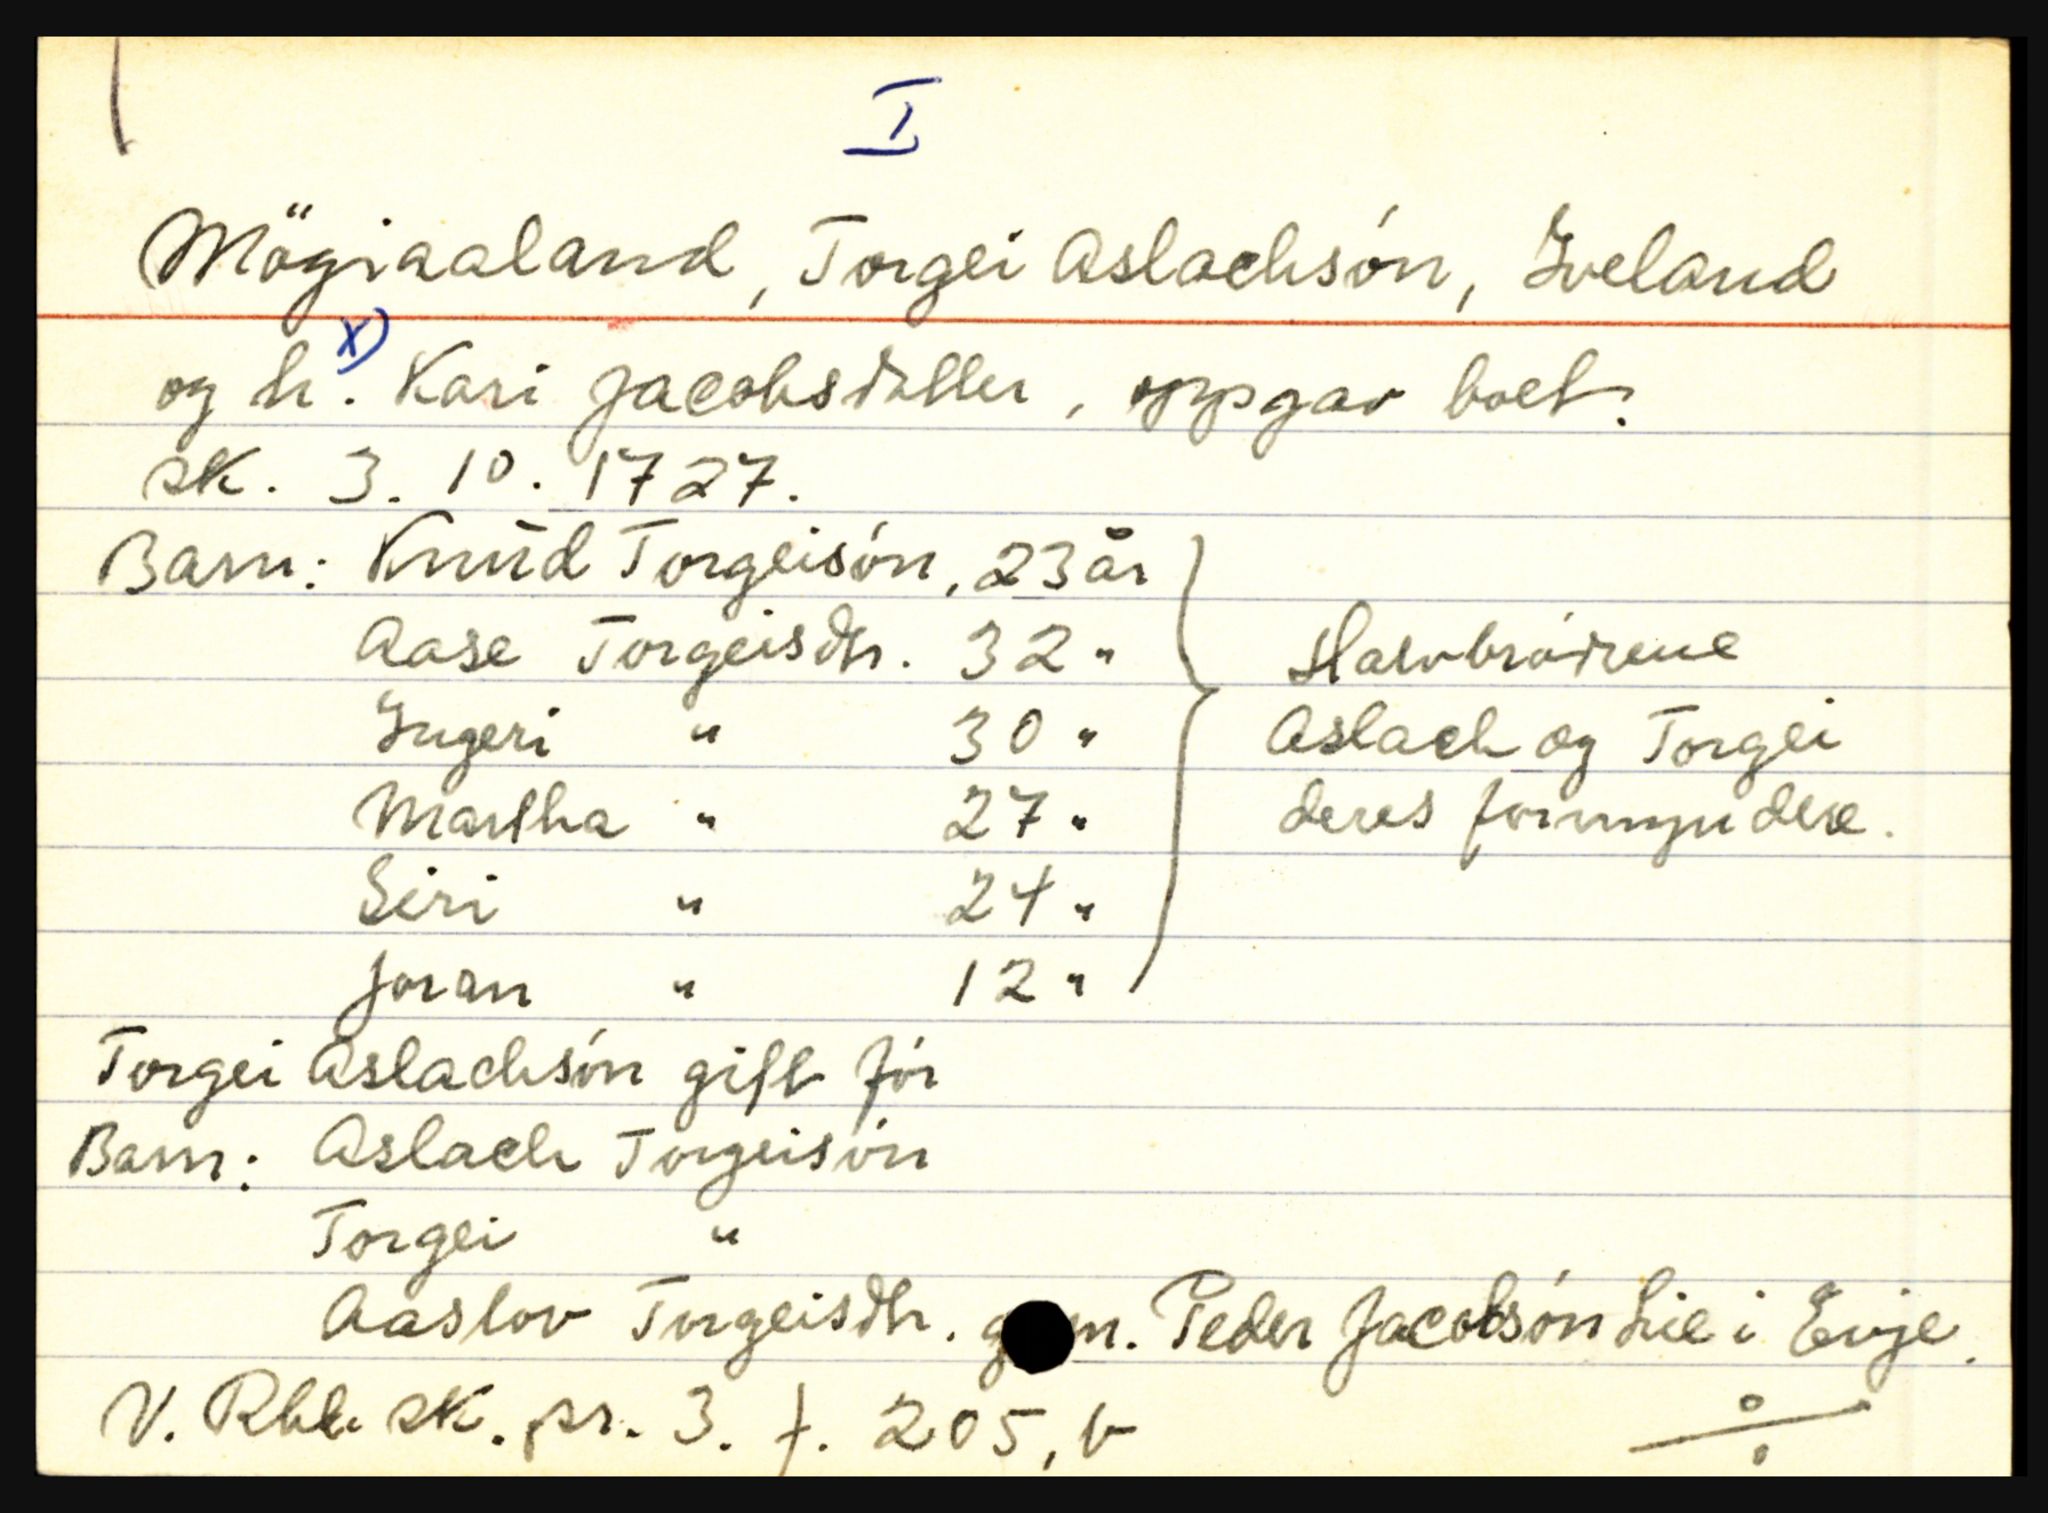 I
Mögiaaland, Torgei Aslachsón, Iveland
og h. x) Kari Jacobsdatter, oppgav boet.
sk. 3. 10. 1727.
Barn: Knud Torgeisón, 23 år
Aase Torgeisdtr. 32 "
Ingeri " 30 "
Martha " 27 "
Siri " 24 "
Joran " 12 "
Halvbródrene
Aslach og Torgei
deres formyndere.
Torgei Aslachsón gift fór
Barn: Aslach Torgeisón
Torgei "
Aaslov Torgeisdtr. g m. Peder Jacobsón Lie i Evje.
V. Rbl. sk. pr. 3. f. 205, b
÷